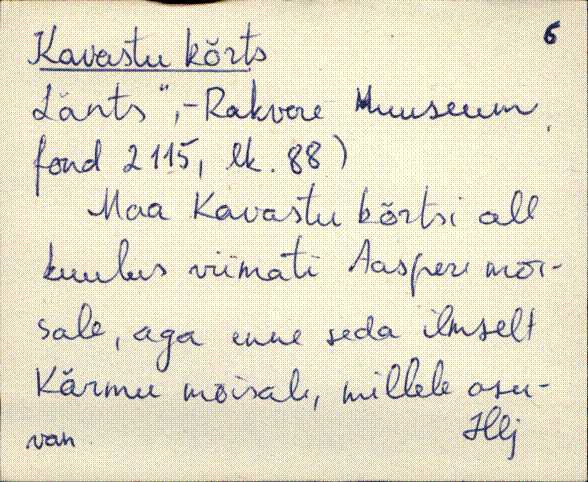 6
Kavastu kõrts
Länts",-Rakvere Muuseum,
fond 2115, lk. 88)
Maa Kavastu kõrtsi all
kuulus viimati Aaspere mõi-
sale, aga enne seda ilmselt
Kärmu mõisale, millele osu-
van